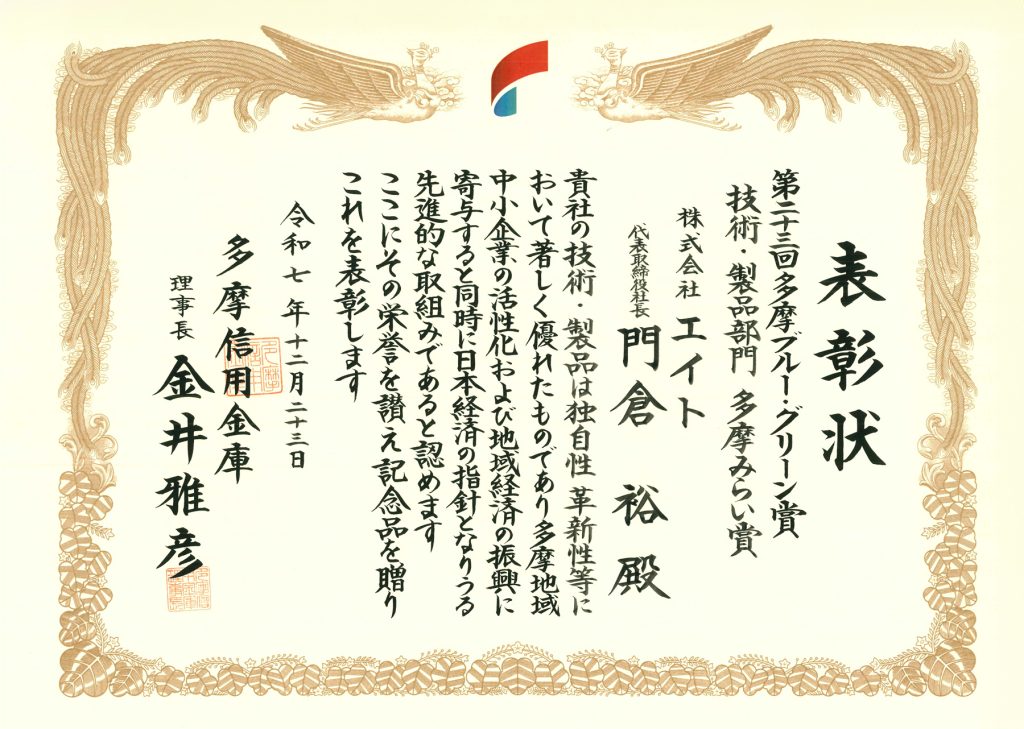 表彰状
第二十三回多摩ブルー・グリーン賞
技術・製品部門 多摩みらい賞
株式会社 エイト
代表取締役社長 門倉 裕殿
貴社の技術・製品は独自性 革新性等に
おいて著しく優れたものであり多摩地域
中小企業の活性化および地域経済の振興に
寄与すると同時に日本経済の指針となりうる
先進的な取組みであると認めます
ここにその栄誉を讃え記念品を贈り
これを表彰します
令和七年十二月二十三日
多摩信用金庫
理事長 金井雅彦